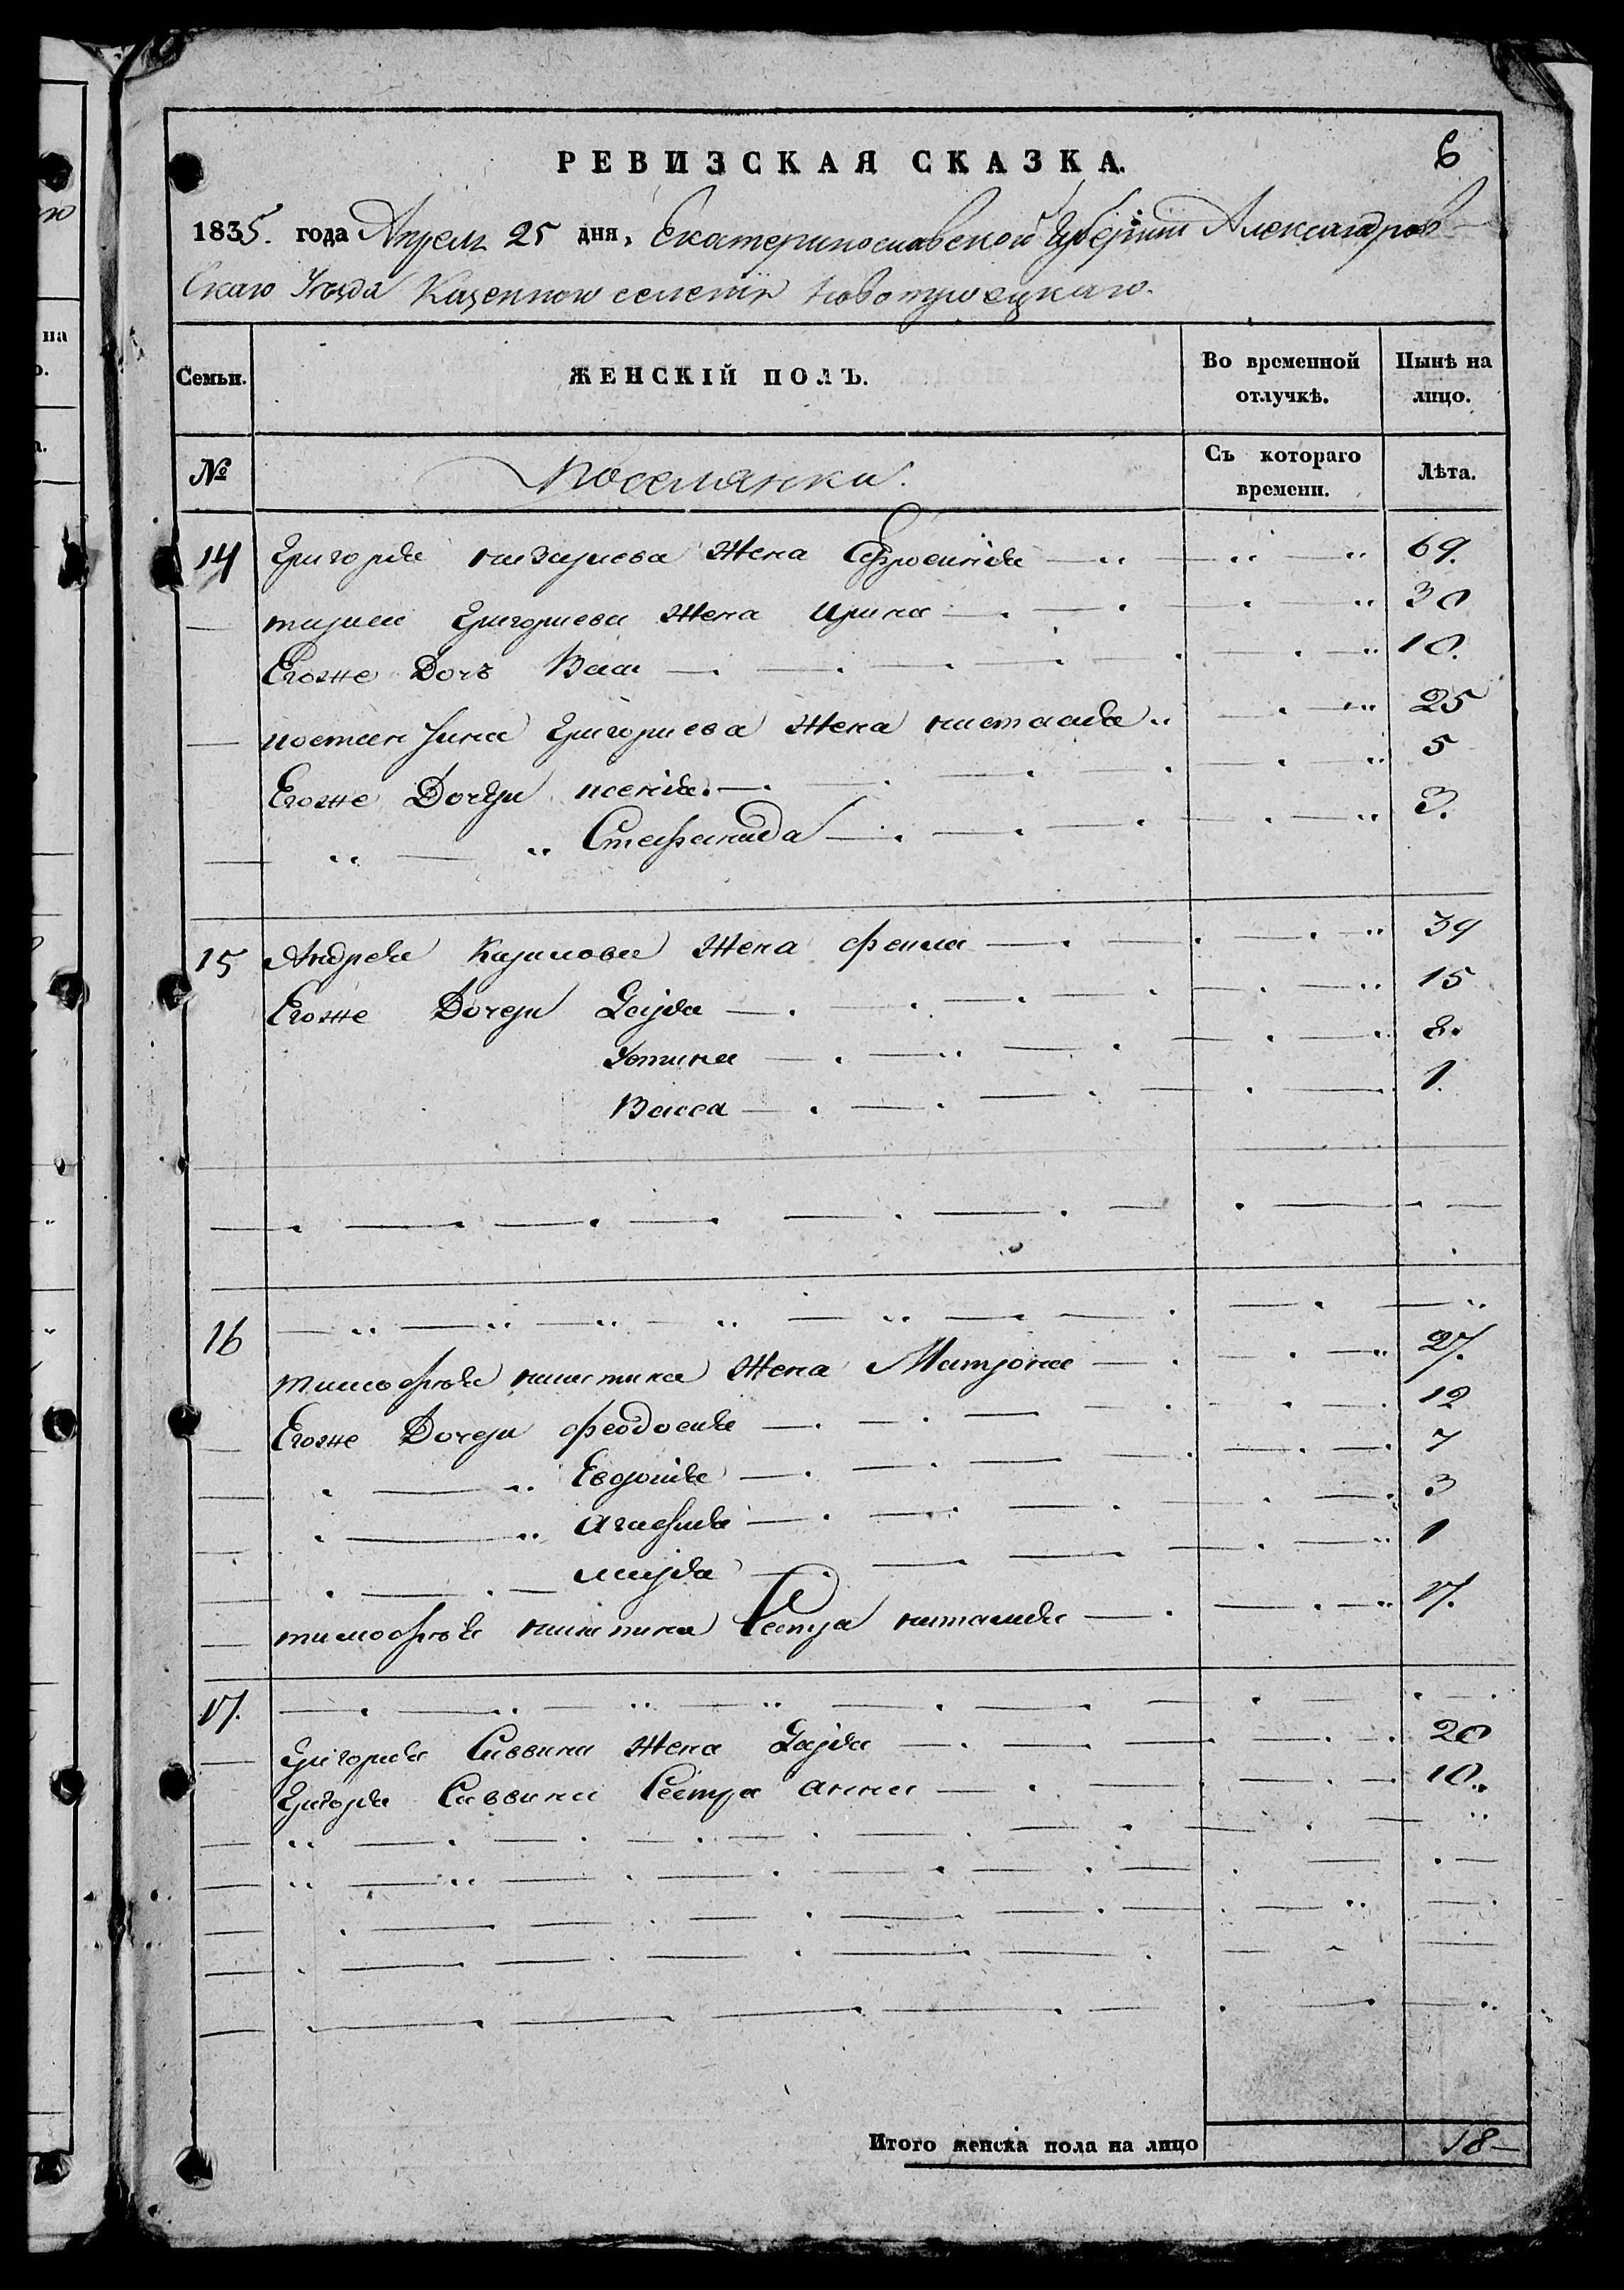 6
РЕВИЗСКАЯ СКАЗКА.
1835. года Апреля 25 дня, Екатеринославской Губернии Александров-
скаго Уезда Казенного селения Новотроецкаго.
Семьи. ЖЕНСКІЙ ПОЛЪ. Во временной отлучкѣ. Нынѣ на лицо.
№ Поселянки. Съ котораго времени. Лѣта.
14 Григорія жена Ефросинія 69.
Григориева жена Ирина 30
Егоже Дочь 10.
Григориева жена настасія 25
Егоже Дочери ксенія 5
Стефанида 3.
15 Андрея жена фекла 39
Егоже Дочери 15
Устина 8.
Васса 1.
16
тимофея никитина жена Матрона 27.
Егоже Дочери феодосия 12
Евдокия 7
Агафия 3
марія 1
тимофея никитина Сестра наталия 17.
17.
Григория Саввина жена 20
Григория Саввина Сестра анна 10.
Итого женска пола на лицо 18